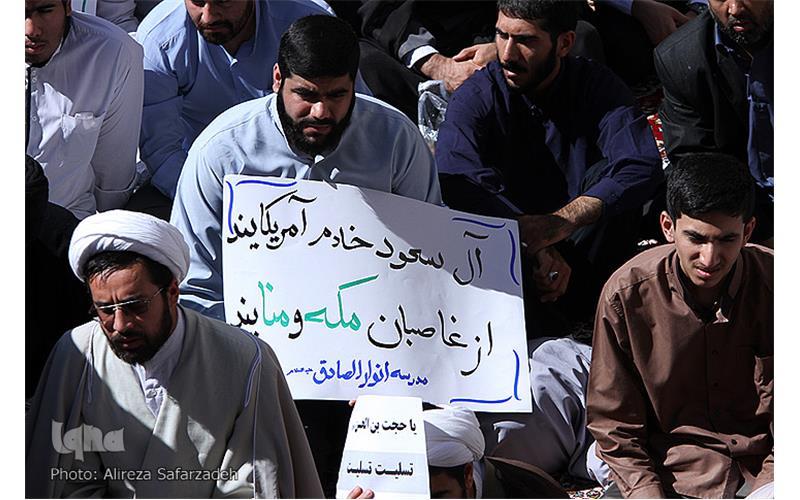 آل سعود خادم آمریکایند
از غاصبان مکه و منایند
مدرسه انوار الصادق علیه السلام
یا حجت بن الحسن
تسلیت تسلیت
iqna
Photo: Alireza Safarzadeh